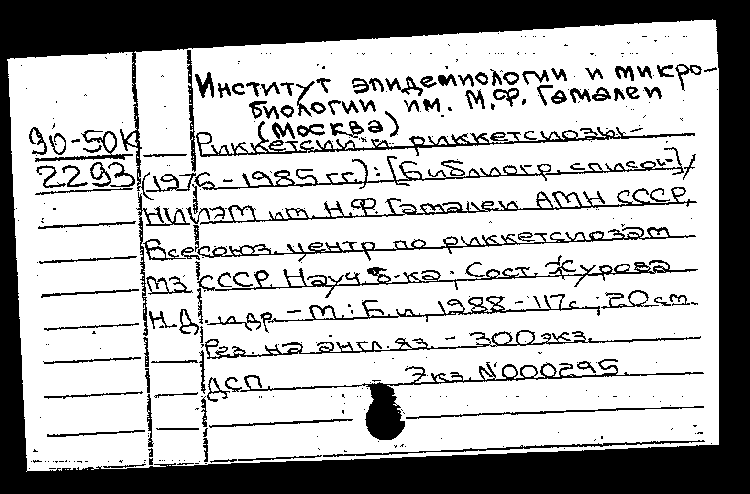 Институт эпидемиологии и микро-
биологии им. М.Ф. Гамалеи
(Москва)
90-50К
2293
Риккетсии и риккетсиозы
(1976-1985 гг.): [Библиогр. список]/
НИИЭМ им. Н.Ф. Гамалеи АМН СССР,
Всесоюз. центр по риккетсиозам
МЗ СССР. Науч. б-ка; Сост. Журова
Н.Д. и др. - М.: Б.и., 1988 - 117с.; 20см.
Рез. на англ. яз. - 300экз.
ДСП. Экз. №000295.